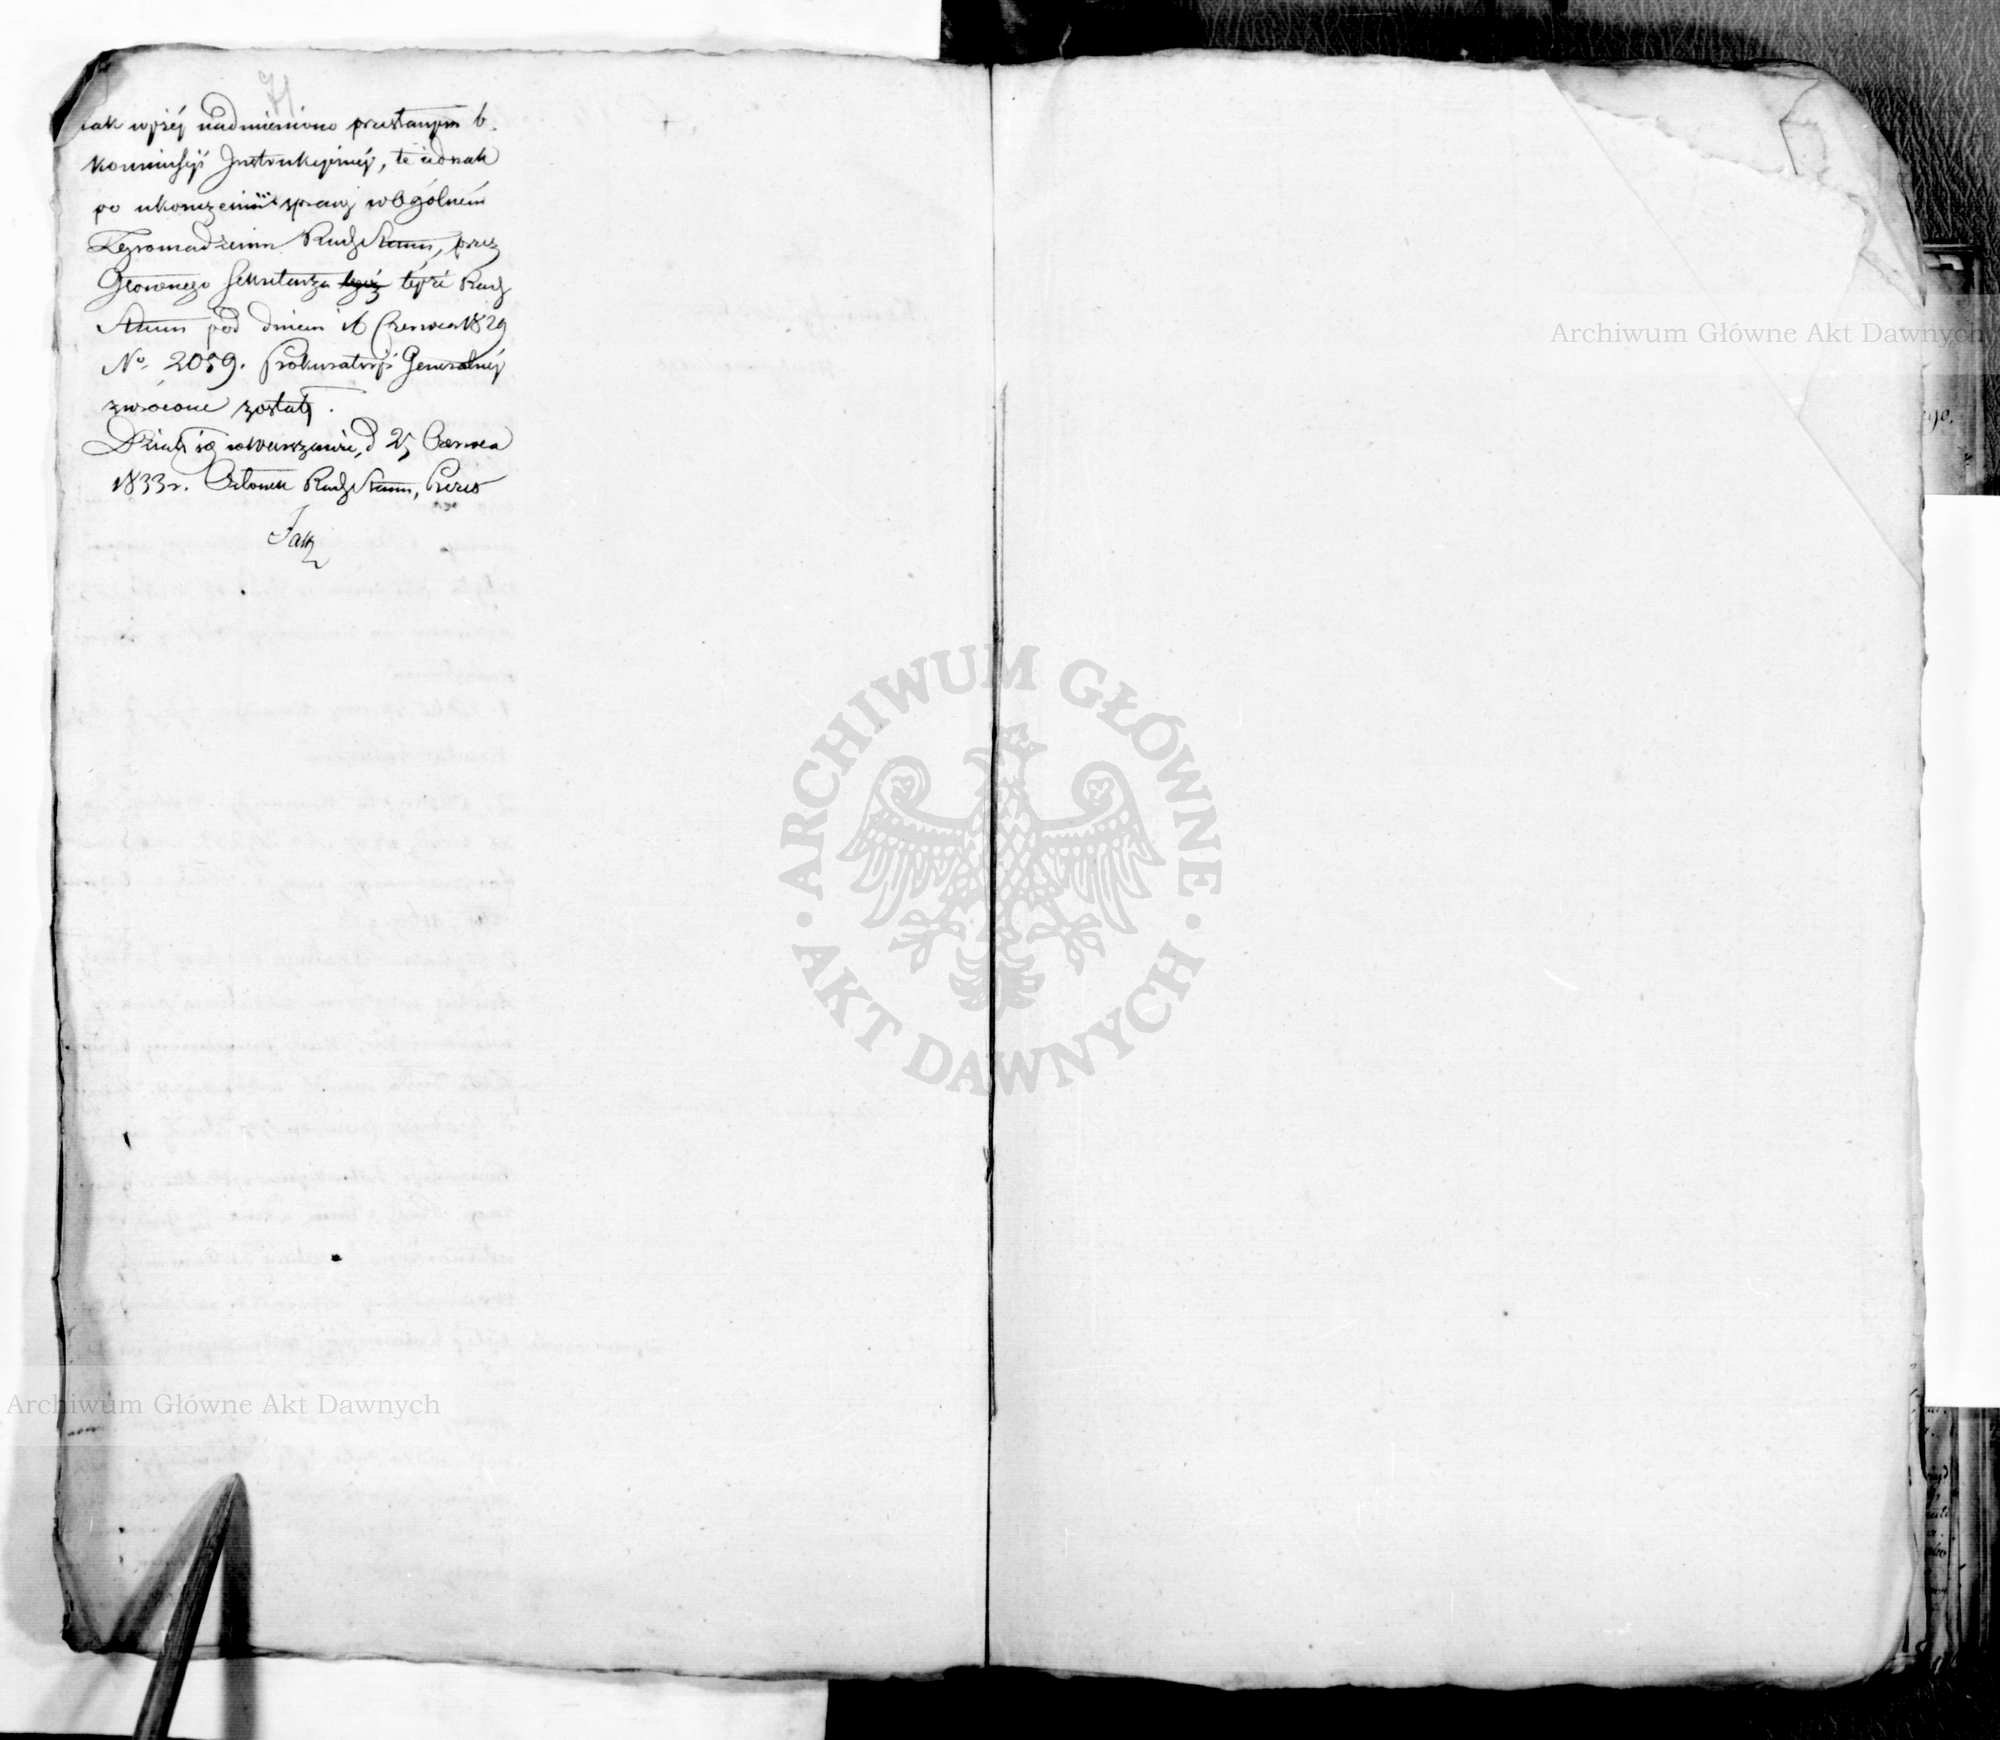 71
iak wyżéj nadmieniono przesłanym b.
Kommissyi Instrukcyinéj, te iednak
po ukończeniu sprawy w Ogólném
Zgromadzeniu Rady Stanu, przez
Głównego Sekretarza téyże Rady
Stanu pod dniem 16 Czerwca 1829
No. 2059. Prokuratoryi Generalnéj
zwrócone zostały.
Działo się w Warszawie, d 25 Czerwca
1833 r. Członek Rady Stanu, Prezes
ARCHIWUM GŁÓWNE
AKT DAWNYCH
Archiwum Główne Akt Dawnych
Archiwum Główne Akt Dawnych